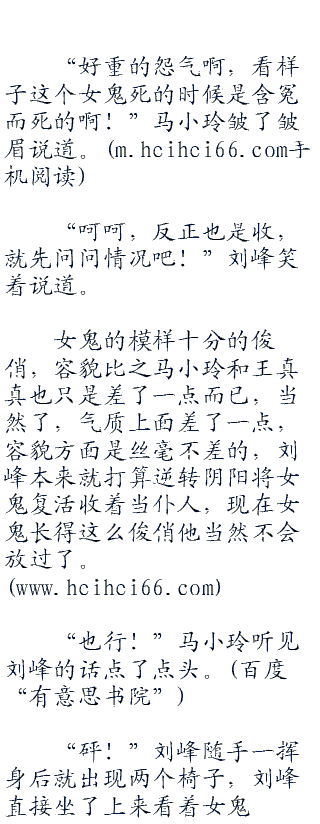 “好重的怨气啊，看样
子这个女鬼死的时候是含冤
而死的啊！”马小玲皱了皱
眉说道。(m.hcihci66.com手
机阅读)
“呵呵，反正也是收，
就先问问情况吧！”刘峰笑
着说道。
女鬼的模样十分的俊
俏，容貌比之马小玲和王真
真也只是差了一点而已，当
然了，气质上面差了一点，
容貌方面是丝毫不差的，刘
峰本来就打算逆转阴阳将女
鬼复活收着当仆人，现在女
鬼长得这么俊俏他当然不会
放过了。
(www.hcihci66.com)
“也行！”马小玲听见
刘峰的话点了点头。(百度
“有意思书院”)
“砰！”刘峰随手一挥
身后就出现两个椅子，刘峰
直接坐了上来看着女鬼